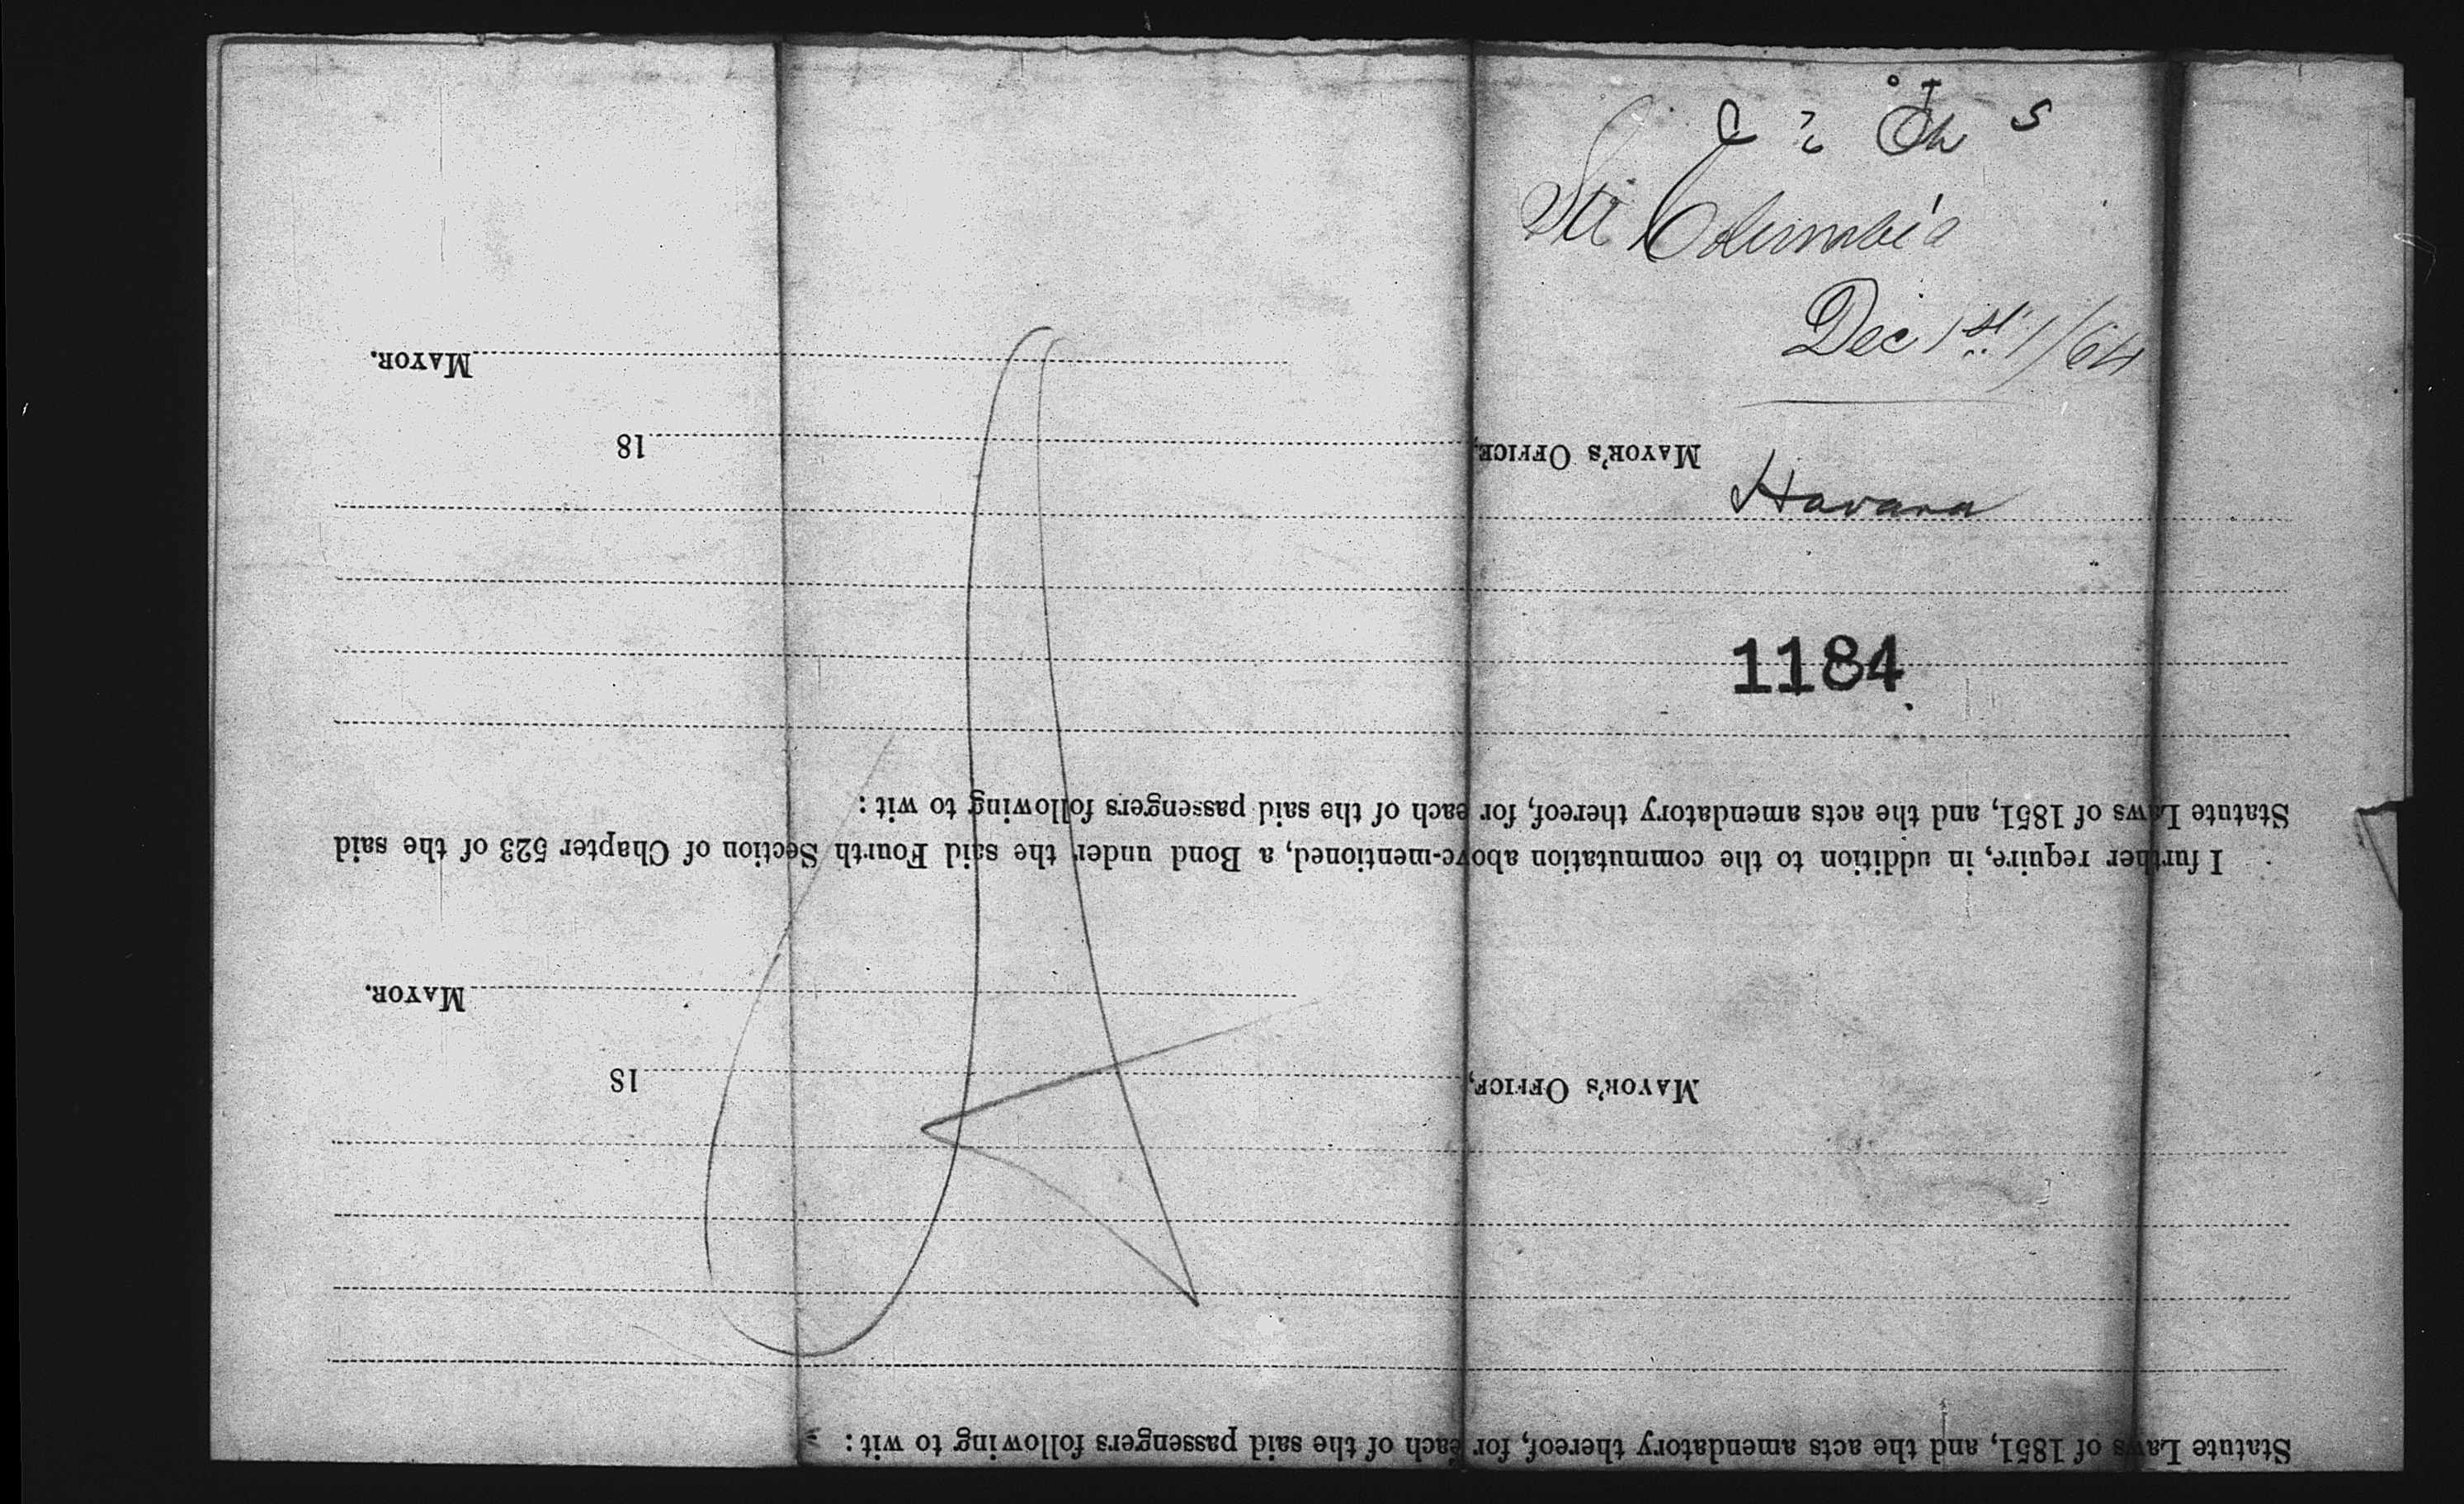 Str Columbia
Dec 1st 1/64
Havana
1184
Statute Laws of 1851, and the acts amendatory thereof, for each of the said passengers following to wit:
18
MAYOR'S OFFICE,
MAYOR.
I further require, in uddition to the commutation above-mentioned, a Bond under the said Fourth Section of Chapter 523 of the said
Statute Laws of 1851, and the acts amendatory thereof, for each of the said passengers following to wit:
MAYOR'S OFFICE, 18
MAYOR.